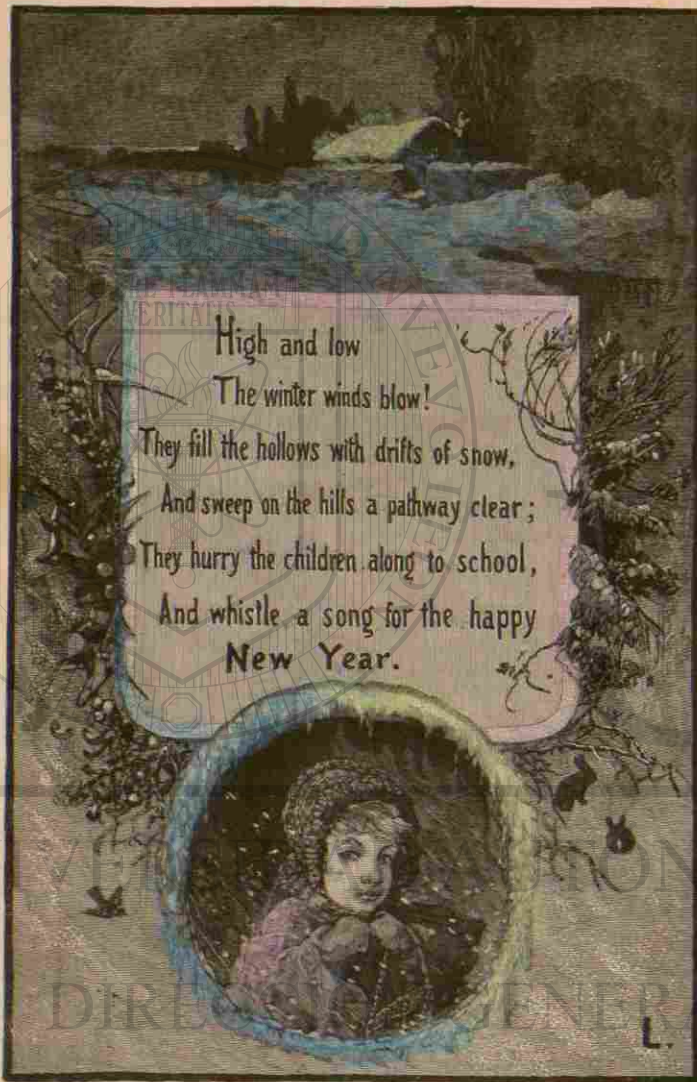 High and low
The winter winds blow!
They fill the hollows with drifts of snow,
And sweep on the hills a pathway clear;
They hurry the children along to school,
And whistle a song for the happy
New Year.
VERITATIS
DIRE GENER
L.